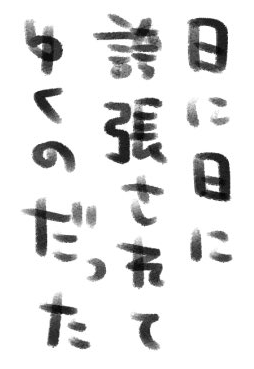 日に日に
誇張されて
ゆくのだった